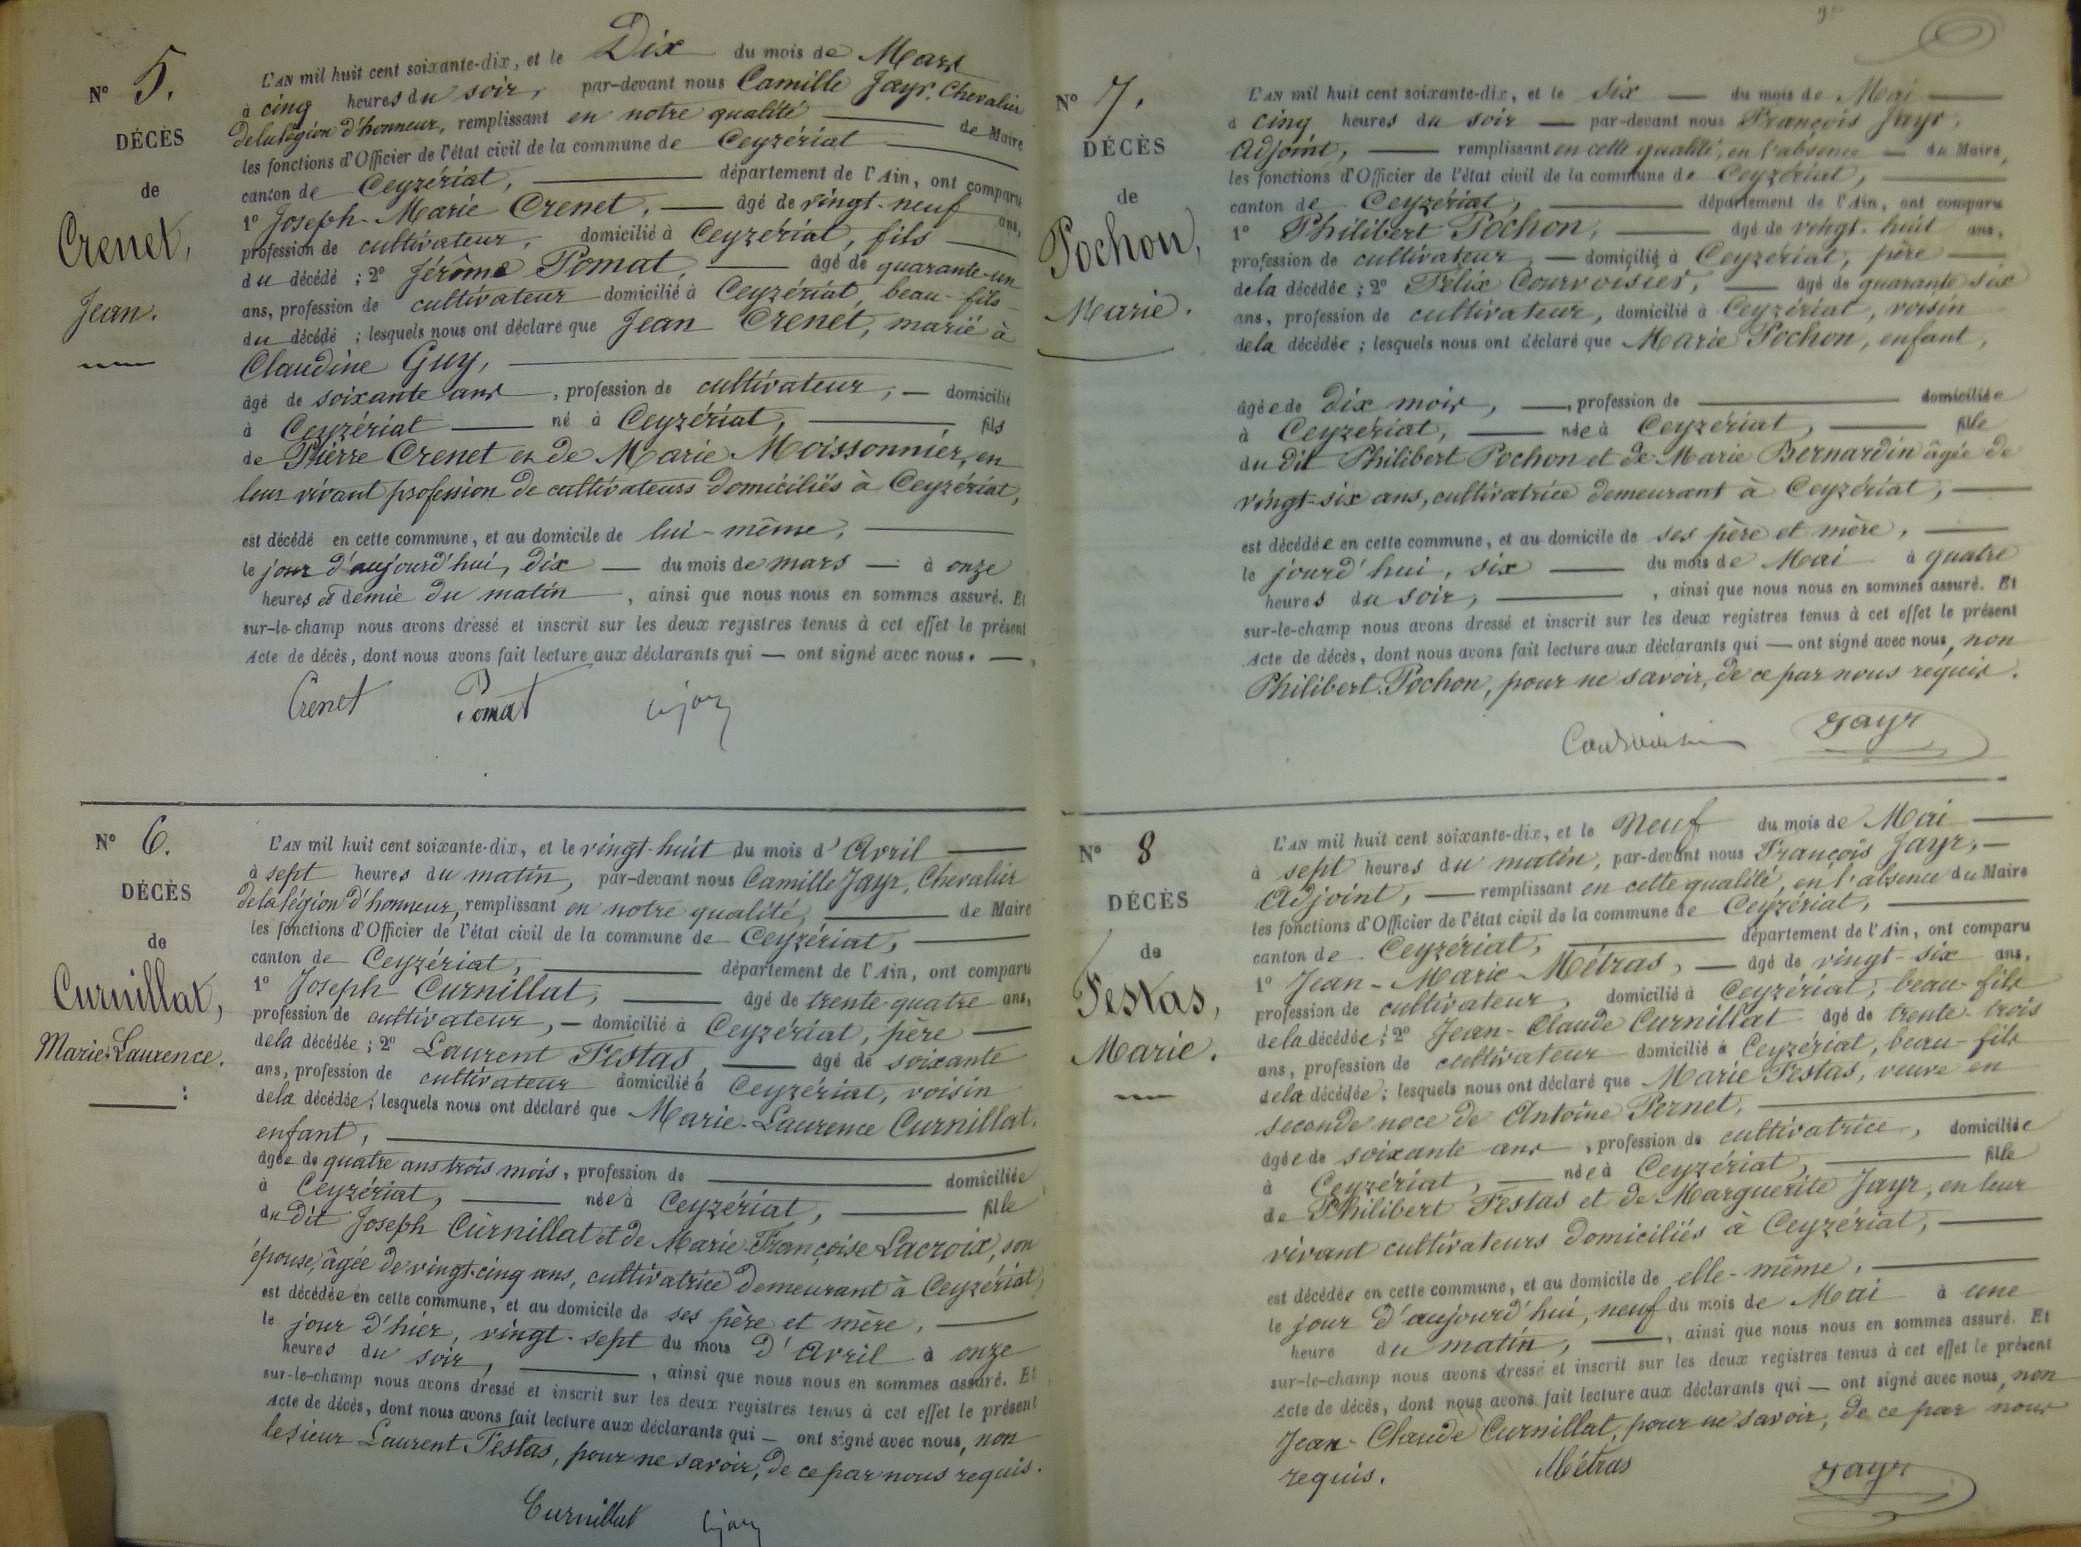 Nº 5.
DÉCÈS
de
Crenet,
Jean.
L'AN mil huit cent soixante-dix, et le Dix du mois de Mars
à cinq heures du soir, par-devant nous Camille Jayr, Chevalier
de la légion d'honneur, remplissant en notre qualité de Maire
les fonctions d'Officier de l'état civil de la commune de Ceyzériat
canton de Ceyzériat, département de l'Ain, ont comparu
1º Joseph-Marie Crenet, âgé de vingt-neuf ans,
profession de cultivateur, domicilié à Ceyzériat, fils
du décédé ; 2º Jérôme Pomat, âgé de quarante-un
ans, profession de cultivateur domicilié à Ceyzériat, beau-fils
du décédé ; lesquels nous ont déclaré que Jean Crenet, marié à
Claudine Guy,
âgé de soixante ans, profession de cultivateur, domicilié
à Ceyzériat né à Ceyzériat, fils
de Pierre Crenet et de Marie Moissonnier, en
leur vivant profession de cultivateurs domiciliés à Ceyzériat,
est décédé en cette commune, et au domicile de lui-même,
le jour d'aujourd'hui, dix du mois de mars à onze
heures et demie du matin, ainsi que nous nous en sommes assuré. Et
sur-le-champ nous avons dressé et inscrit sur les deux registres tenus à cet effet le présent
Acte de décès, dont nous avons fait lecture aux déclarants qui — ont signé avec nous. —
Crenet Pomat
Nº 6.
DÉCÈS
de
Curnillat,
Marie-Laurence.
L'AN mil huit cent soixante-dix, et le vingt-huit du mois d'Avril
à sept heures du matin, par-devant nous Camille Jayr, Chevalier
de la légion d'honneur, remplissant en notre qualité, de Maire
les fonctions d'Officier de l'état civil de la commune de Ceyzériat,
canton de Ceyzériat, département de l'Ain, ont comparu
1º Joseph Curnillat, âgé de trente-quatre ans,
profession de cultivateur, — domicilié à Ceyzériat, père
de la décédée ; 2º Laurent Festas, âgé de soixante
ans, profession de cultivateur domicilié à Ceyzériat, voisin
de la décédée ; lesquels nous ont déclaré que Marie-Laurence Curnillat,
enfant,
âgée de quatre ans trois mois, profession de domiciliée
à Ceyzériat, née à Ceyzériat, fille
du dit Joseph Curnillat et de Marie Françoise Lacroix, son
épouse, âgée de vingt-cinq ans, cultivatrice demeurant à Ceyzériat,
est décédée en cette commune, et au domicile de ses père et mère,
le jour d'hier, vingt-sept du mois d'Avril à onze
heures du soir, ainsi que nous nous en sommes assuré. Et
sur-le-champ nous avons dressé et inscrit sur les deux registres tenus à cet effet le présent
Acte de décès, dont nous avons fait lecture aux déclarants qui — ont signé avec nous, non
le sieur Laurent Festas, pour ne savoir, de ce par nous requis.
Curnillat
Nº 7.
DÉCÈS
de
Pochon,
Marie.
L'AN mil huit cent soixante-dix, et le six du mois de Mai
à cinq heures du soir — par-devant nous François Jayr,
Adjoint, remplissant en cette qualité, en l'absence du Maire,
les fonctions d'Officier de l'état civil de la commune de Ceyzériat,
canton de Ceyzériat, département de l'Ain, ont comparu
1º Philibert Pochon, âgé de vingt-huit ans,
profession de cultivateur, — domicilié à Ceyzériat, père
de la décédée ; 2º Félix Courvoisier, âgé de quarante six
ans, profession de cultivateur, domicilié à Ceyzériat, voisin
de la décédée ; lesquels nous ont déclaré que Marie Pochon, enfant,
âgée de dix mois, profession de domiciliée
à Ceyzériat, née à Ceyzériat, fille
du dit Philibert Pochon et de Marie Bernardin âgée de
vingt-six ans, cultivatrice demeurant à Ceyzériat,
est décédée en cette commune, et au domicile de ses père et mère,
le jourd'hui, six du mois de Mai à quatre
heures du soir, ainsi que nous nous en sommes assuré. Et
sur-le-champ nous avons dressé et inscrit sur les deux registres tenus à cet effet le présent
Acte de décès, dont nous avons fait lecture aux déclarants qui — ont signé avec nous, non
Philibert Pochon, pour ne savoir, de ce par nous requis.
Jayr
Nº 8
DÉCÈS
de
Festas,
Marie.
L'AN mil huit cent soixante-dix, et le Neuf du mois de Mai
à sept heures du matin, par-devant nous François Jayr, —
Adjoint, — remplissant en cette qualité, en l'absence du Maire
les fonctions d'Officier de l'état civil de la commune de Ceyzériat,
canton de Ceyzériat, département de l'Ain, ont comparu
1º Jean-Marie Métras, — âgé de vingt-six ans,
profession de cultivateur, domicilié à Ceyzériat, beau-fils
de la décédée ; 2º Jean-Claude Curnillat âgé de trente-trois
ans, profession de cultivateur domicilié à Ceyzériat, beau-fils
de la décédée ; lesquels nous ont déclaré que Marie Festas, veuve en
seconde noce de Antoine Pernet,
âgée de soixante ans, profession de cultivatrice, domiciliée
à Ceyzériat, née à Ceyzériat, fille
de Philibert Festas et de Marguerite Jayr, en leur
vivant cultivateurs domiciliés à Ceyzériat,
est décédée en cette commune, et au domicile de elle-même,
le jour d'aujourd'hui, neuf du mois de Mai à une
heure du matin, ainsi que nous nous en sommes assuré. Et
sur-le-champ nous avons dressé et inscrit sur les deux registres tenus à cet effet le présent
Acte de décès, dont nous avons fait lecture aux déclarants qui — ont signé avec nous, non
Jean-Claude Curnillat, pour ne savoir, de ce par nous
requis. Métras Jayr